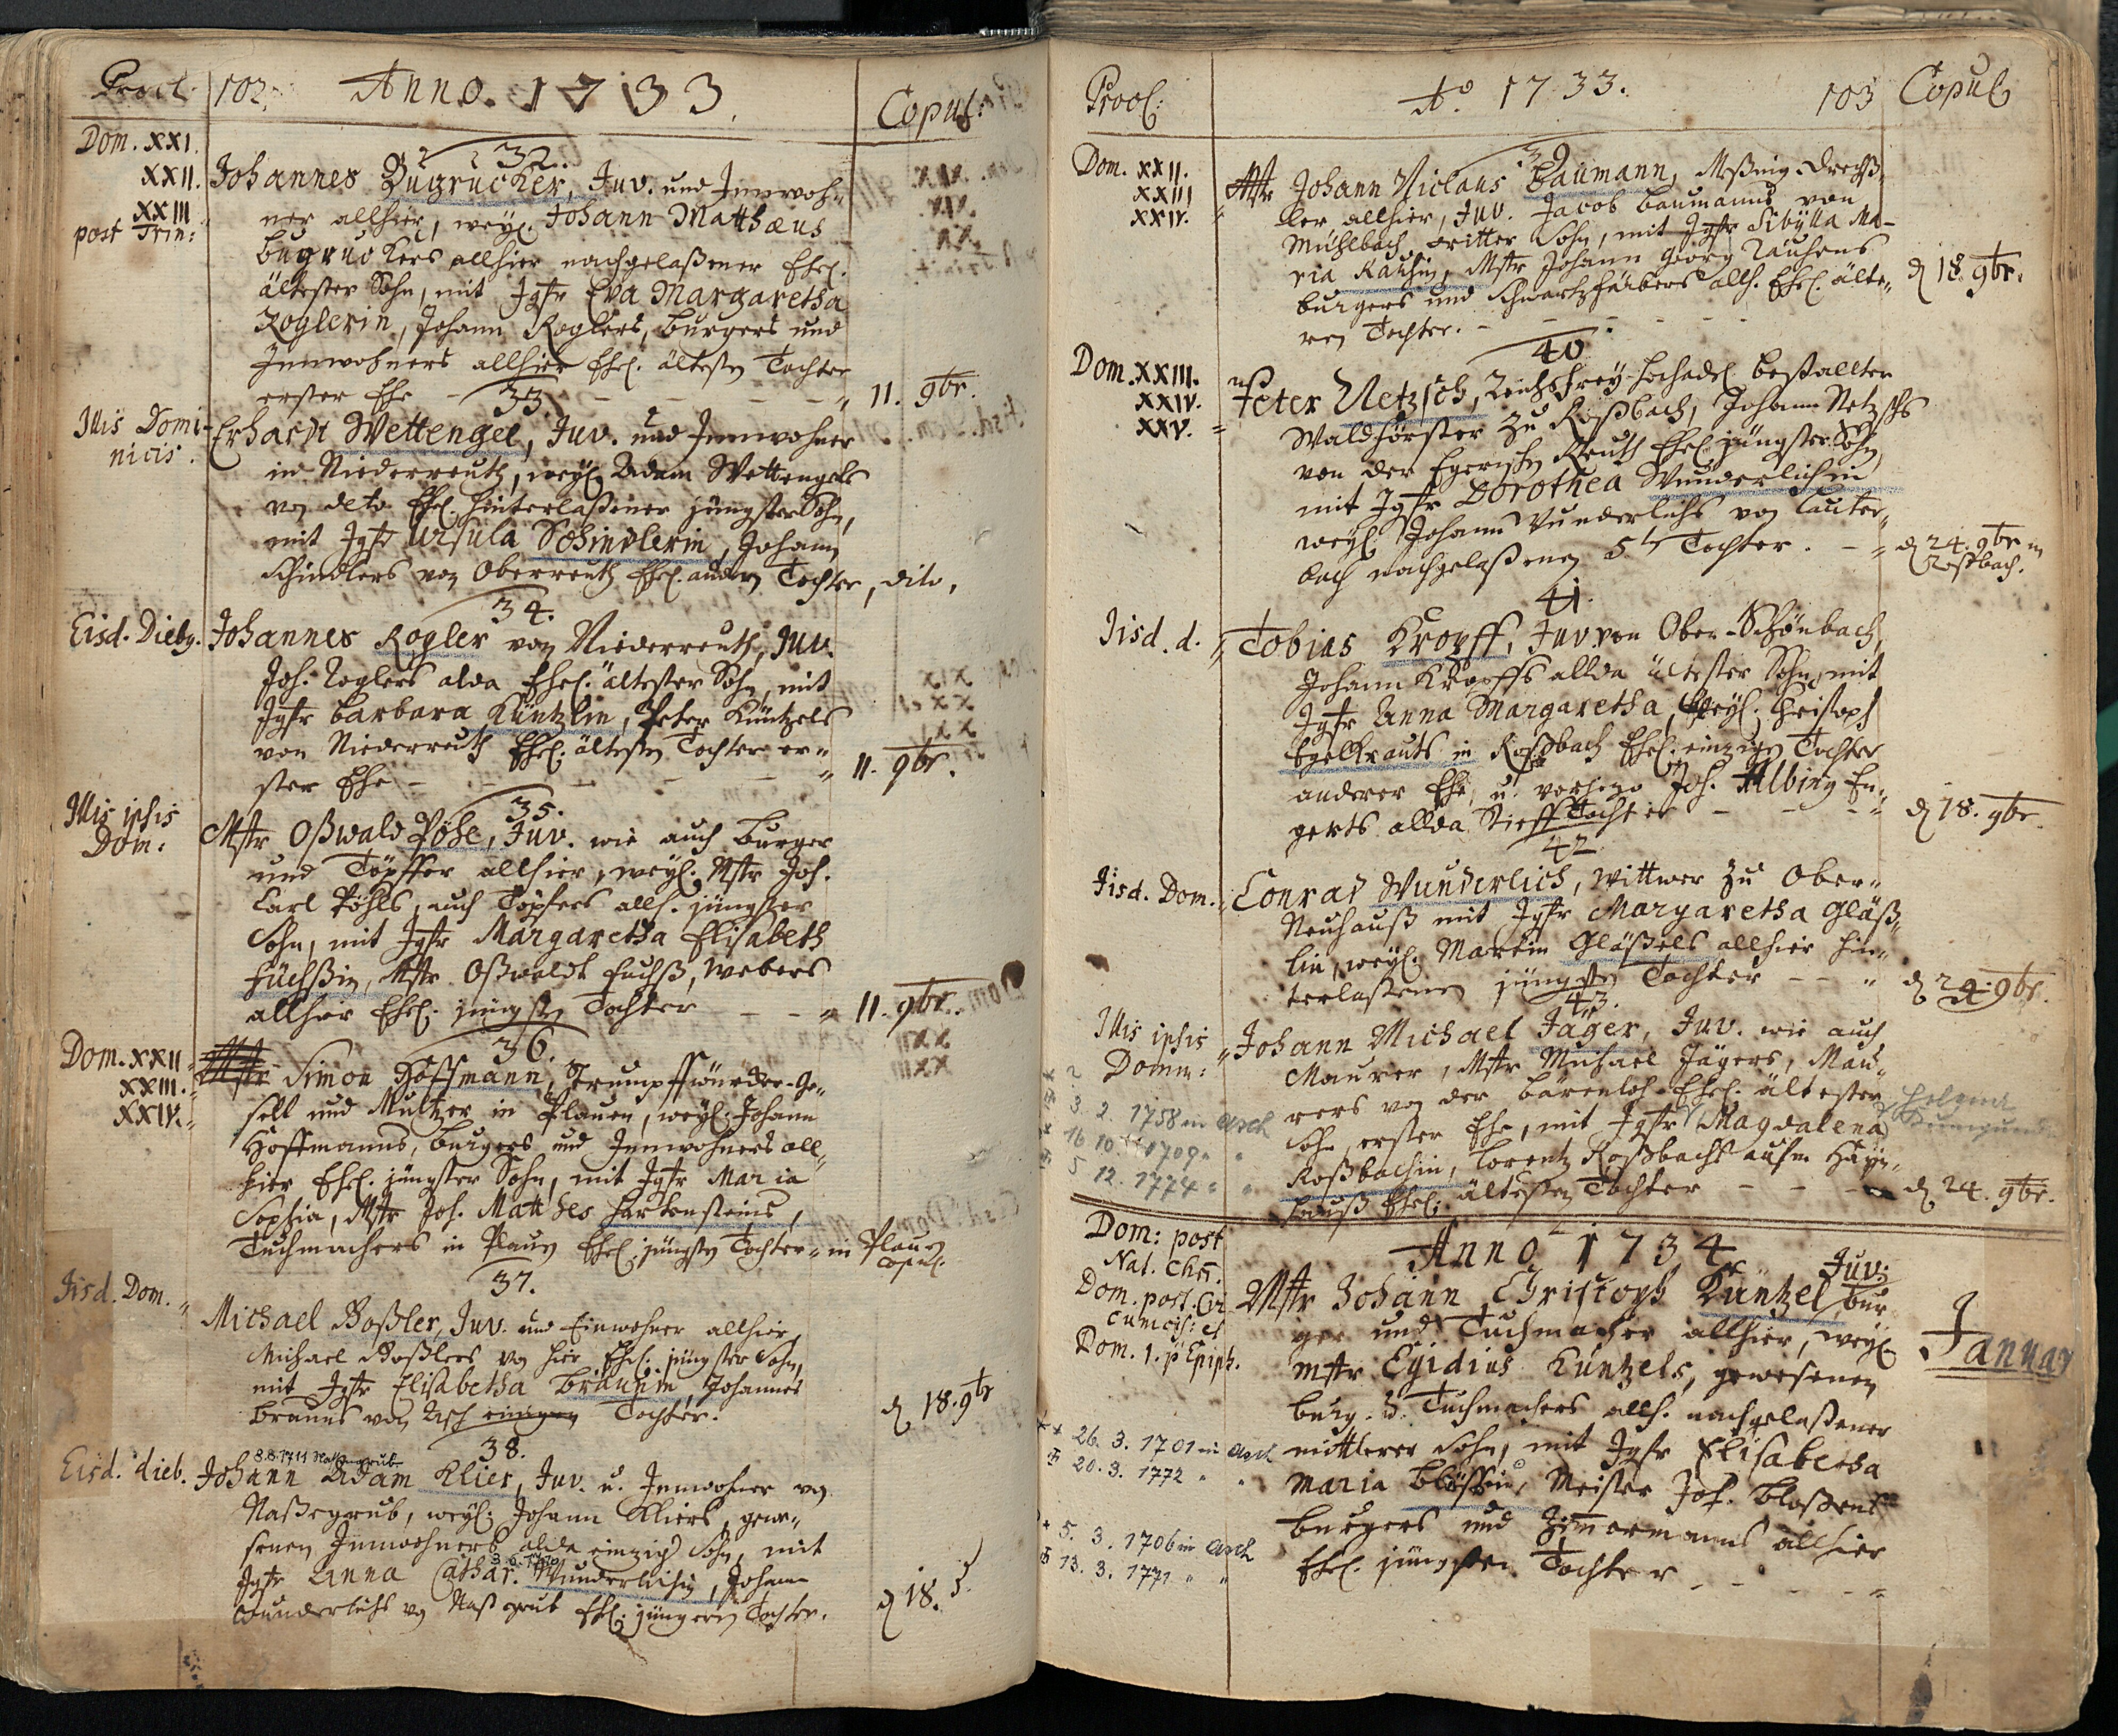 Procl. 102. Anno. 1733. Copul:
Dom. XXI.
XXII.
XXIII
post Trin:
32.
Johannes Bugrucker, Juv. und Innwoh-
ner allhier, weyl. Johann Matthæus
Bugruckers allhier nachgelaßener Ehel.
ältester Sohn, mit Jgfr Eva Margaretha
Roglerin, Johann Roglers, Burgers und
Innwohners allhier Ehel. ältesten Tochter
erster Ehe - - - - 11. 9br.
33.
Illis Domi-
nicis.
Erhardt Wettengel, Juv. und Innwohner
in Niederreuth, weyl. Adam Wettengels
von deto Ehel. hinterlaßener jüngster Sohn,
mit Jgfr Ursula Schindlerin, Johann
Schindlers von Oberreuth Ehel. andern Tochter, dito.
34.
Eisd. Dieb.
Johannes Rogler von Niederreuth, Juv.
Joh. Roglers alda Ehel. ältester Sohn, mit
Jgfr Barbara Küntzlin, Peter Küntzels
von Niederreuth Ehel. ältesten Tochter er-
ster Ehe - - - - 11. 9br.
35.
Illis ipsis
Dom:
Mstr Oßwald Pöhl, Juv. wie auch Burger
und Töpffer allhier, weyl. Mstr Joh.
Carl Pöhls, auch Töpfers allh. jüngster
Sohn, mit Jgfr Margaretha Elisabeth
Füchßin, Mstr Oßwaldt Fuchß, Webers
allhier Ehel. jüngsten Tochter - - 11. 9br.
36.
Dom. XXII
XXIII.
XXIV.
Mstr Simon Hoffmann, Strumpffwürcker-Ge-
sell und Multzer in Plauen, weyl. Johann
Hoffmanns, Burgers und Innwohners all-
hier Ehel. jüngster Sohn, mit Jgfr Maria
Sophia, Mstr Joh. Matthes Hartensteins,
Tuchmachers in Plauen Ehel. jüngsten Tochter - in Plauen
Copul.
37.
Iisd. Dom.
Michael Boßler, Juv. und Einwohner allhier,
Michael Boßlers von hier Ehel. jüngster Sohn,
mit Jgfr Elisabetha Braunin, Johannes
Brauns von Asch einigen Tochter. d 18. 9br
38.
8.8.1711 Naßengrub
Eisd. dieb.
Johann Adam Klier, Juv. u. Innwohner von
Naßegrub, weyl. Johann Kliers, gewe-
senen Innwohners alda einzig Sohn, mit
3.6.1710
Jgfr Anna Cathar. Wunderlichin, Johann
Wunderlichs von Naßgrub Ehel. jüngern Tochter. d 18.
Procl: Ao. 1733. 103 Copul
39
Dom. XXII.
XXIII
XXIV.
Mstr Johann Niclaus Baumann, Meßing-Drechß-
ler allhier, Juv. Jacob Baumanns von
Mühlbach dritter Sohn, mit Jgfr Sibylla Ma-
ria Rauhin, Mstr Johann Georg Rauhens
Burgers und Schwartzfärbers allh. Ehel. älte-
ren Tochter. - - - d 18. 9br.
40
Dom. XXIII.
XXIV.
XXV.
Peter Netzsch, Reichsfrey-Hochadel. bestallter
Waldförster zu Roßbach, Johann Netzschs
von der Egerischen Reuth Ehel. jüngster Sohn,
mit Jgfr Dorothea Wunderlichin
weyl. Johann Wunderlichs von Lauter-
bach nachgelaßenen 5ten Tochter. - d 24. 9br in
Roßbach.
41.
Iisd. d.
Tobias Kropff, Juv. von Ober-Schönbach,
Johann Kropffs allda ältester Sohn, mit
Jgfr Anna Margaretha, weyl. Christoph
Egelkrauts in Roßbach Ehel. einzigen Tochter
anderer Ehe, u. vorhero Joh. Albing En-
gerts allda Stieff Tochter - - d 18. 9br.
42
Iisd. Dom.
Conrad Wunderlich, Wittwer zu Ober-
Neuhauß mit Jgfr Margaretha Gläß-
lin, weyl. Martin Gläßels allhier hin-
terlaßenen jüngsten Tochter - - d 24. 9br.
43.
Illis ipsis
Domin:
Johann Michael Jäger, Juv. wie auch
Maurer, Mstr Michael Jägers, Mau-
rers von der Bärenloh Ehel. ältester
Sohn erster Ehe, mit Jgfr Magdalena
Helena
Kunigunda
Roßbachin, Lorentz Roßbachs aufm Hayn-
hauß Ehel. ältesten Tochter - - d 24. 9br.
3. 2. 1758 in Asch
16 10. 1709 " "
5 12. 1774 " "
Anno 1734
Dom: post
Nat. Chri.
Dom. post. Cir
cumcis: et
Dom. 1. p Epiph.
Mstr Johann Christoph Küntzel Juv. Bur-
ger und Tuchmacher allhier, weyl.
Mstr Egidius Küntzels, gewesenen
Burg. u. Tuchmachers allh. nachgelaßener
mittlerer Sohn, mit Jgfr Elisabetha
Maria Bloßin, Meister Joh. Bloßens
Burgers und Zimermanns allhier
Ehel. jüngsten Tochter - - -
Januar
* 26. 3. 1701 in Asch
20. 3. 1772 " "
* 5. 3. 1706 in Asch
13. 3. 1771 " "